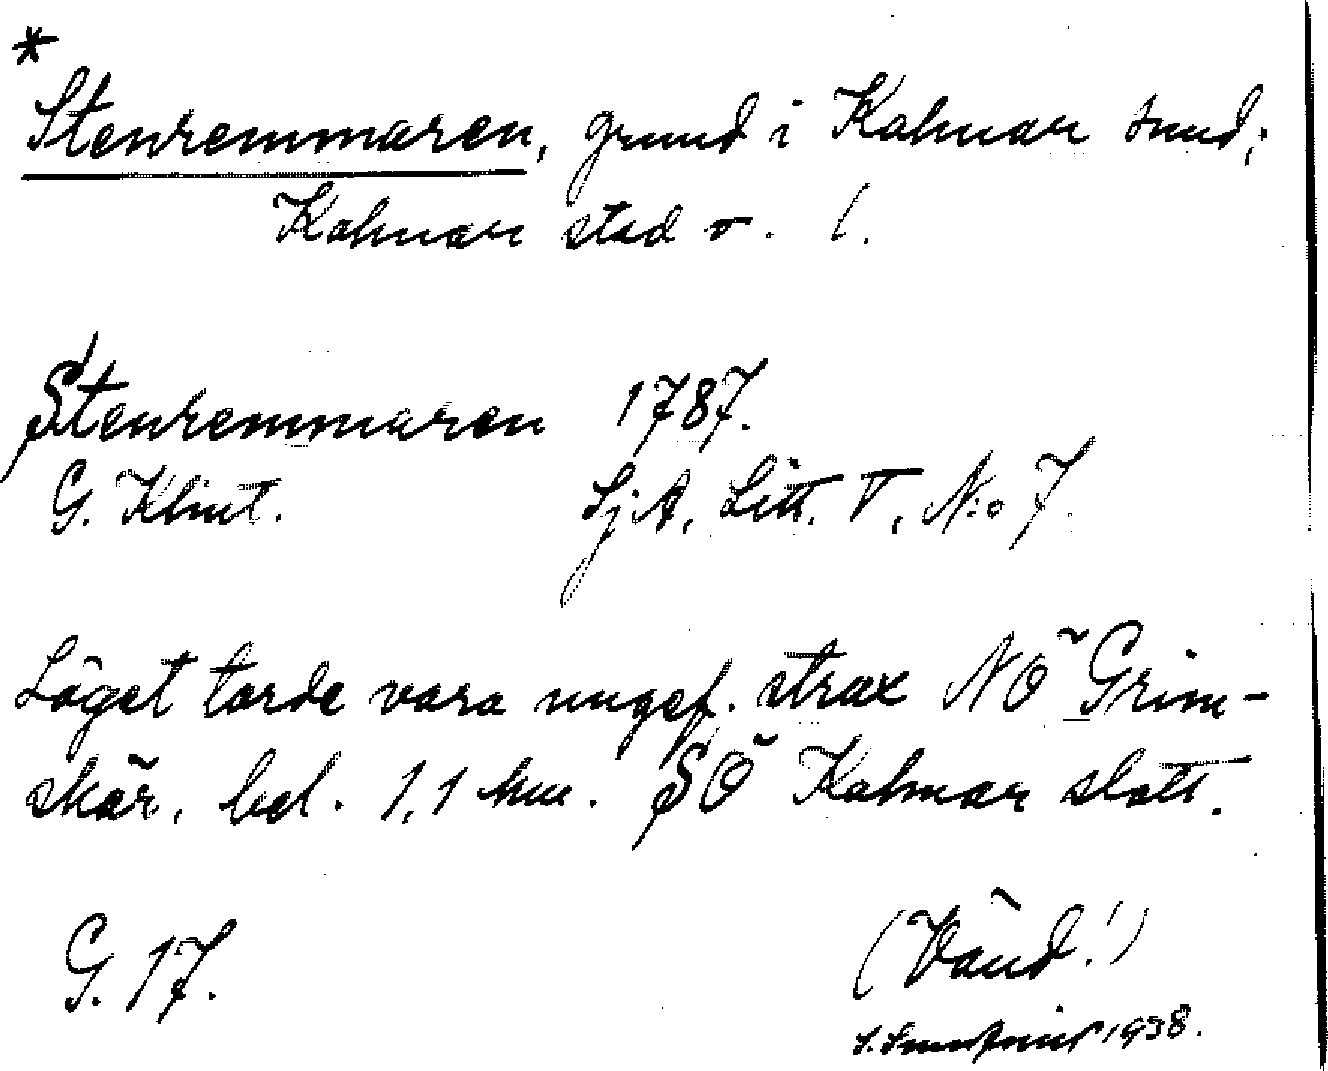 *
Stenremmaren, grund i Kalmar sund;
Kalmar stad o. l.
Stenremmaren 1787.
G. Klint. SjA, Litt. T, N:o 7.
Läget torde vara ungef. strax NÖ Grim-
skär, bel. 1,1 km. SÖ Kalmar slott.
G. 17.
(Vänd!)
1938.